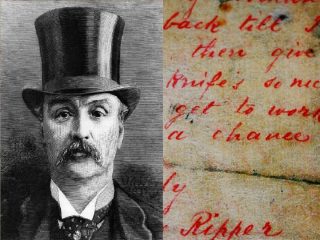 back till I
then give
knife's so nice
get to work
a chance
Ripper